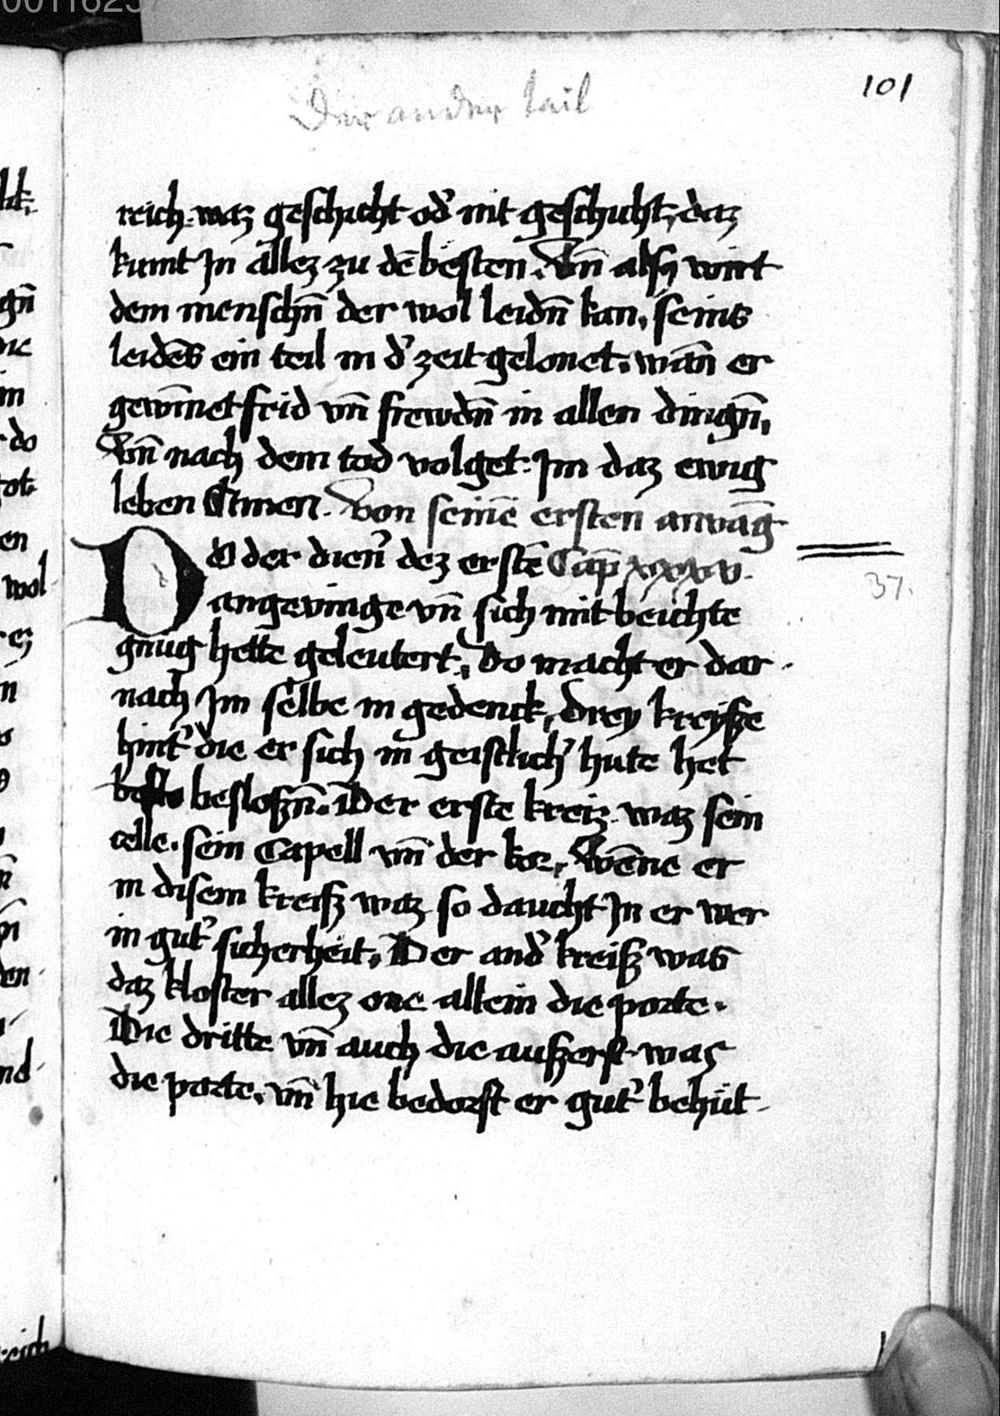 Der ander tail
101
reich. waz geschicht od' nit geschiht, daz
kumt In allez zu dē besten. Vn̄ also wirt
dem menschn̄ der wol leidn̄ kan, seins
leidēs ein teil in d' zeit gelonet. wān er
gewīnet frid vn̄ frewdn̄ in allen dingn̄,
Vn̄ nach dem tod volget Im daz ewig
leben Amen. Von seinē ersten anvāg
DO der dien' dez erstē Cap̄ xxxv.
37.
angevinge vn̄ sich mit beichte
gnug hette geleutert, Do macht er dar
nach Im selbe in gedenck, drey kreiße
hint' die er sich in geistlich' hute het
besloßn̄. Der erste kreiz waz sein
celle. sein Capell vn̄ der kor, Wēne er
in disem kreiß waz so daucht In er wer
in gut' sicherheit, Der and' kreiß was
daz kloster allez one allein die porte.
Die dritte vn̄ auch die außerst was
die porte, vn̄ hie bedorst er gut' behüt